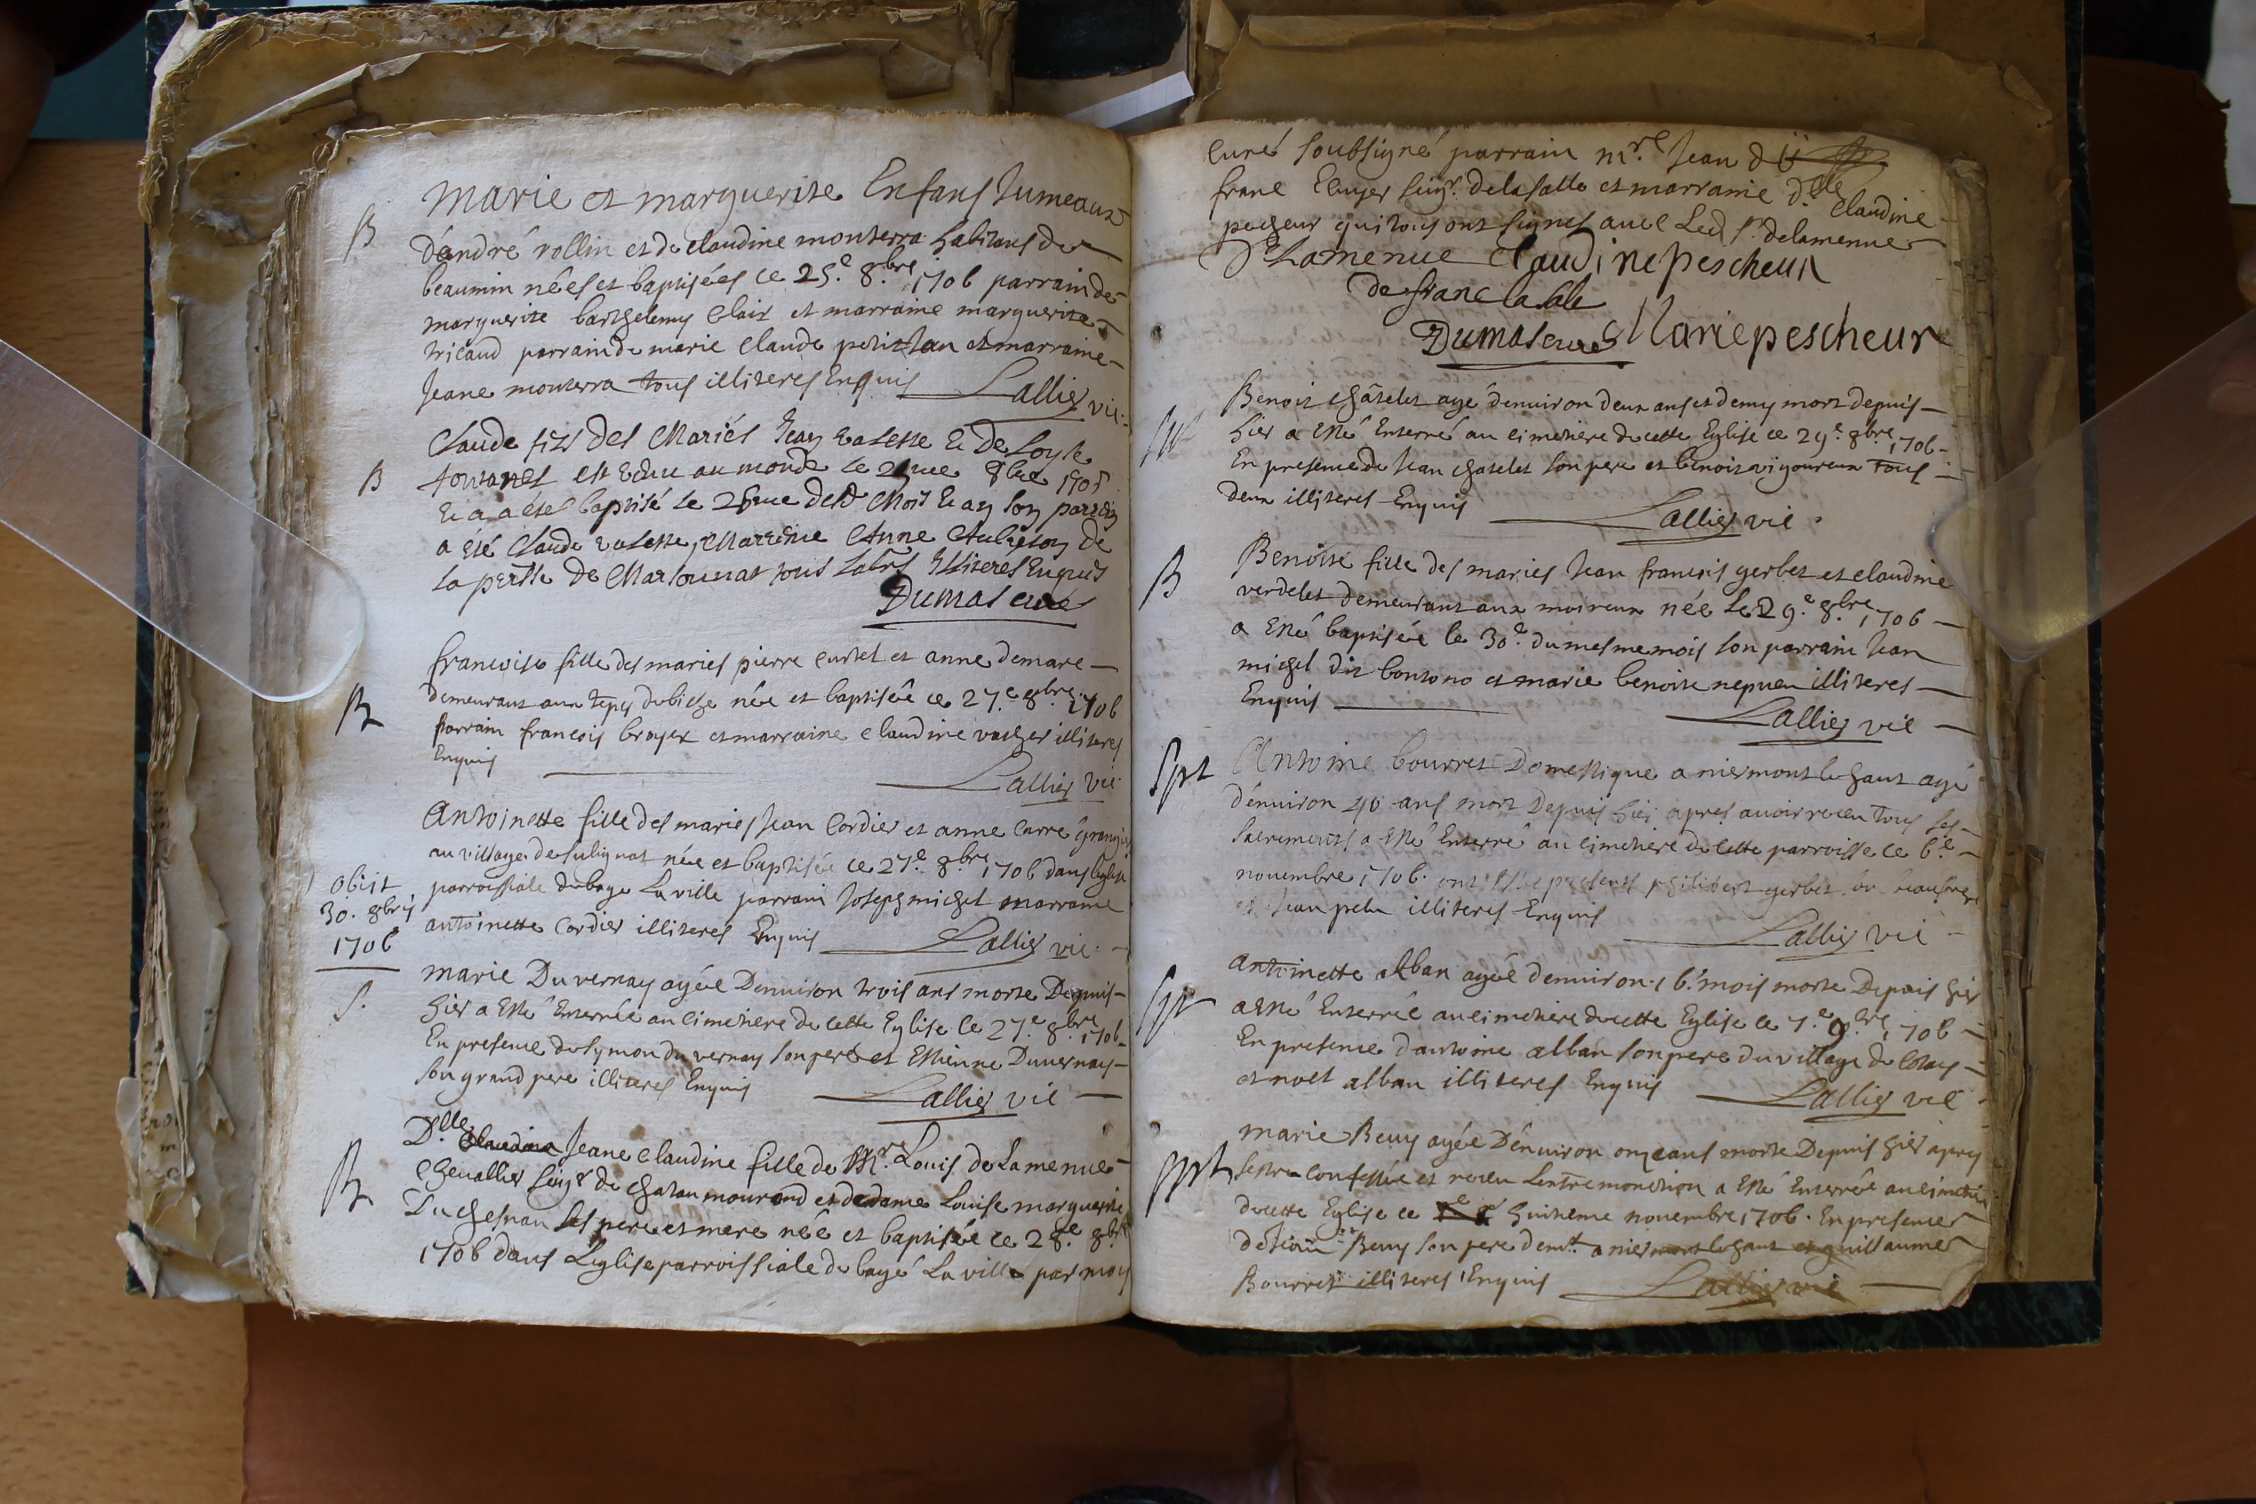 B
Marie et marguerite Enfans Jumeaux
d'andré rollin et de claudine monterra habitans de
beaumin nées et baptisées ce 25.e 8.bre 1706 parrain de
marguerite barthelemy Clair et marraine marguerite
tricaud parrain de marie Claude petitjean et marraine
Jeane monterra tous illiteres Enquis Lallier vic.
B
Claude fizs des Mariés Jean valette Et De
est venu au monde le 8bre 170
Et a a étés baptisé le des.d Mois Et an son parrein
a été Claude valette, Marrènie Anne de
la De Marsounat tous Illiteres Enquis
Dumas curé
B
francoise fille des maries pierre curtet et anne demare
demeurant aux née et baptisée ce 27.e 8bre 1706
parrain francois broyer et marraine claudine vacher illiteres
Enquis Lallier vic.
Antoinette fille des maries Jean Cordier et anne Carré grangers
au village de sulignat née et baptisée ce 27.e 8.bre 1706 dans leglise
parroissiale de bage La ville parrain Joseph michel marraine
antoinette Cordier illiteres Enquis Lallier vic.
obiit
30. 8bris
1706
S.
marie Duvernay agée Denuiron trois ans morte Depuis
hier a Esté Enterrée au cimetiere de cette Eglise le 27.e 8.bre 1706
En presence de Symon du vernay son pere et Estienne Duvernay
son grand pere illiteres Enquis Lallier vic
B
D.lle Claudine Jeane Claudine fille de Mr. Louis de Lamenue
Chevallier Seigr de chatau mourand et de dame Louise marguerite
Duchesnau ses pere et mere née et baptisée ce 28.e 8.bre
1706 dans L'eglise parroissiale de bagé La ville par moy
Curé soubsigné parrain mr.e Jean d
franc Ecuyer seigr. de la salle et marraine d.lle Claudine
pecheur qui tous ont signes avec Led. s.r delamenue
Lamenue Claudine Pescheur
de franc la sale
Dumas curé Marie pescheur
Benoit Chatelet agé d'enuiron deux ans et demy mort depuis
hier a Esté Enterré au cimetiere de cette Eglise ce 29.e 8.bre 1706
En presence de Jean chatelet son pere et benoit vigoureux tous
deux illiteres Enquis Lallier vic.
B
Benoite fille des maries Jean francois gerbet et claudine
verdelet demeurant aux moireux née Le 29.e 8.bre 1706
a Esté baptisée le 30.e du mesme mois son parrain Jean
michel dit bontono et marie benoite nepueu illiteres
Enquis Lallier vic
Spt
Antoine bourret Domestique a niermont le haut agé
d'enuiron 40 ans mort Depuis hier apres avoir receu tous ses
sacrements a Esté Enterré au cimetiere de cette parroisse ce 6.e
novembre 1706. ont presents philibert gerbet beaufrere
et Jean illiteres Enquis Lallier vic
Spt
antoinette alban agée denuiron 16. mois morte Depuis hier
a Esté Enterrée au cimetiere de cette Eglise le 7.e 9.bre 1706
En presence d'antoine alban son pere du village de
et noel alban illiteres Enquis Lallier vic
marie Beuy agée D'enuiron onze ans morte Depuis hier apres
sestre confessée et receu Lextremonction a Esté Enterrée au cimetiere
de cette Eglise ce huitieme novembre 1706. En presence
de Beuy son pere dem.t a niermont le haut et guillaume
Bourret illiteres Enquis Lallier vic